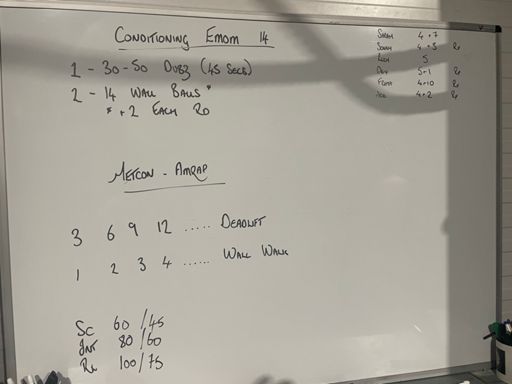 Conditioning Emom 14
1 - 30-50 Dubz (45 Secs)
2 - 14 Wall Balls *
* +2 Each RD
Metcon - Amrap
3 6 9 12 ..... Deadlift
1 2 3 4 ...... Wall Walk
Sc 60/45
Int 80/60
Rx 100/75
Sarah 4+7
4+5 Rx
5
5+1 Rx
4+10 Rx
4+2 Rx